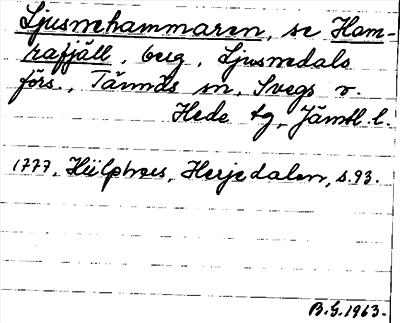 Ljusnehammaren, se Ham-
rafjäll, berg, Ljusnedals
förs., Tännäs sn, Svegs o.
Hede tg, Jämtl. l.
1777, Hülphers, Herjedalen, s.93.
B.G.1963.